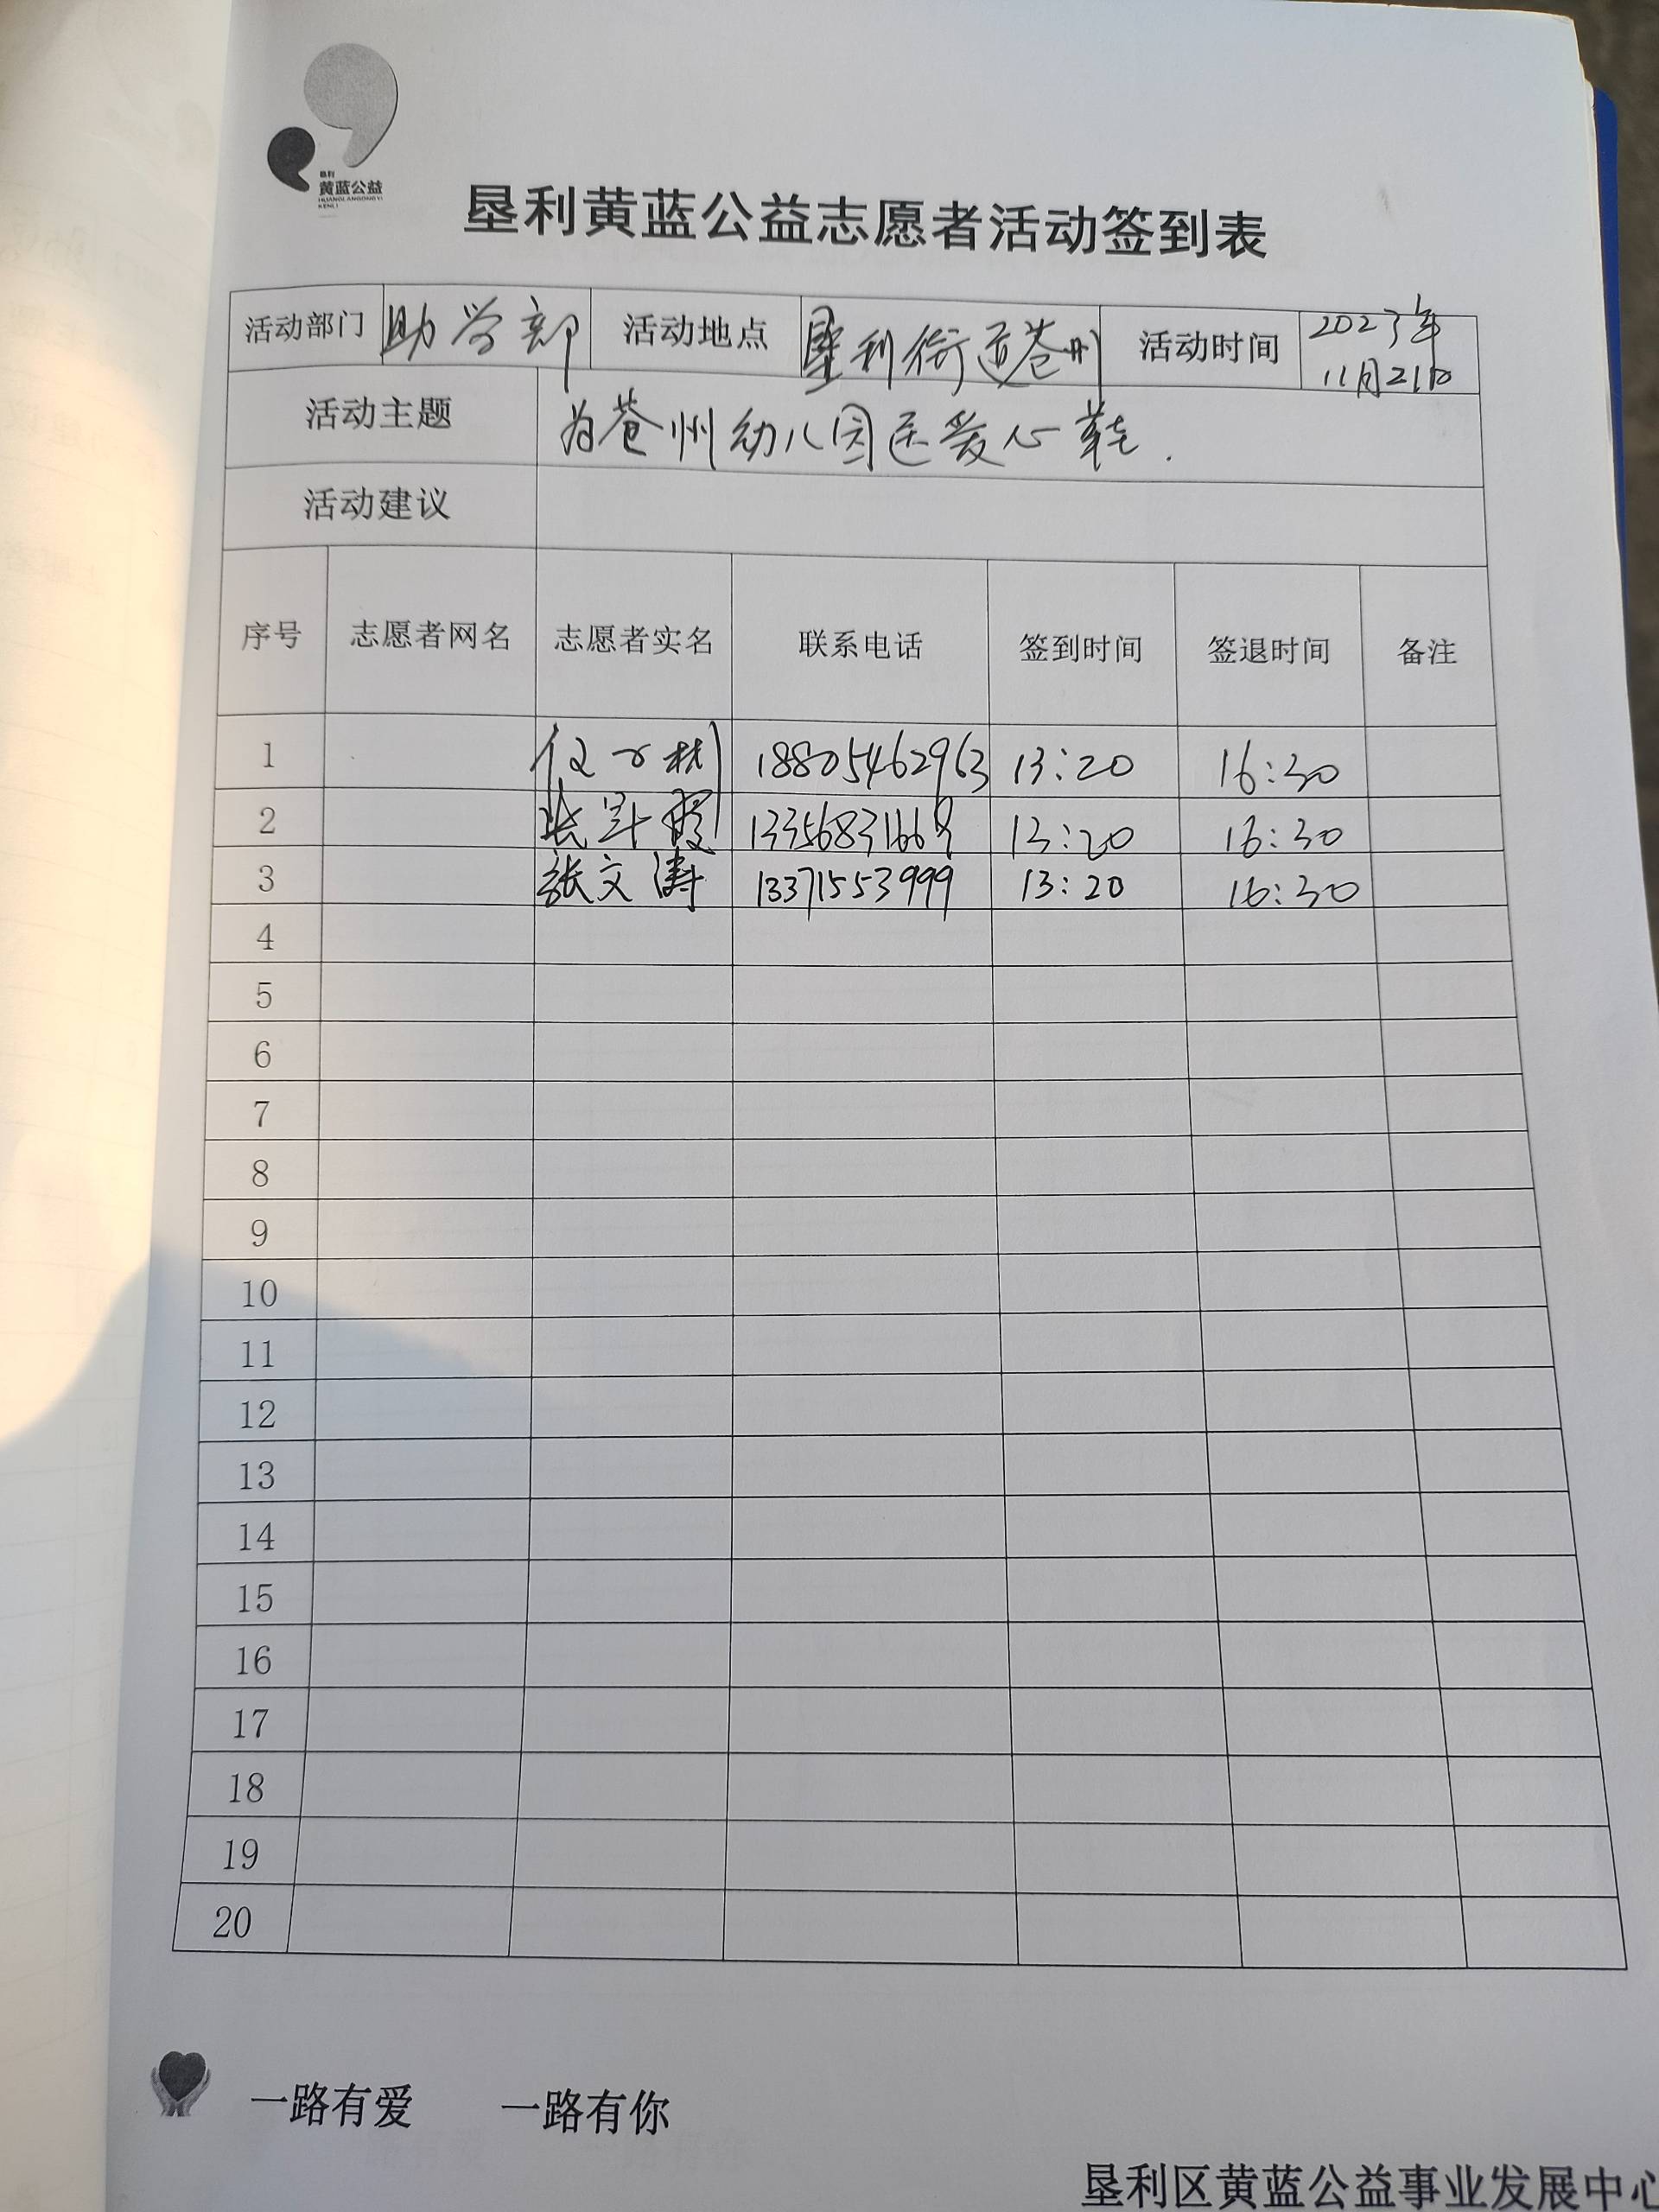 垦利
黄蓝公益
HUANGLANGONGYI
KENLI
垦利黄蓝公益志愿者活动签到表
活动部门 助学部 活动地点 垦利街道苍州 活动时间 2023年
11月21日
活动主题 为苍州幼儿园送爱心鞋.
活动建议
序号 志愿者网名 志愿者实名 联系电话 签到时间 签退时间 备注
1 18805462963 13:20 16:30
2 张 霞 13356831669 13:20 16:30
3 張文涛 13371553999 13:20 16:30
4
5
6
7
8
9
10
11
12
13
14
15
16
17
18
19
20
一路有爱 一路有你
垦利区黄蓝公益事业发展中心